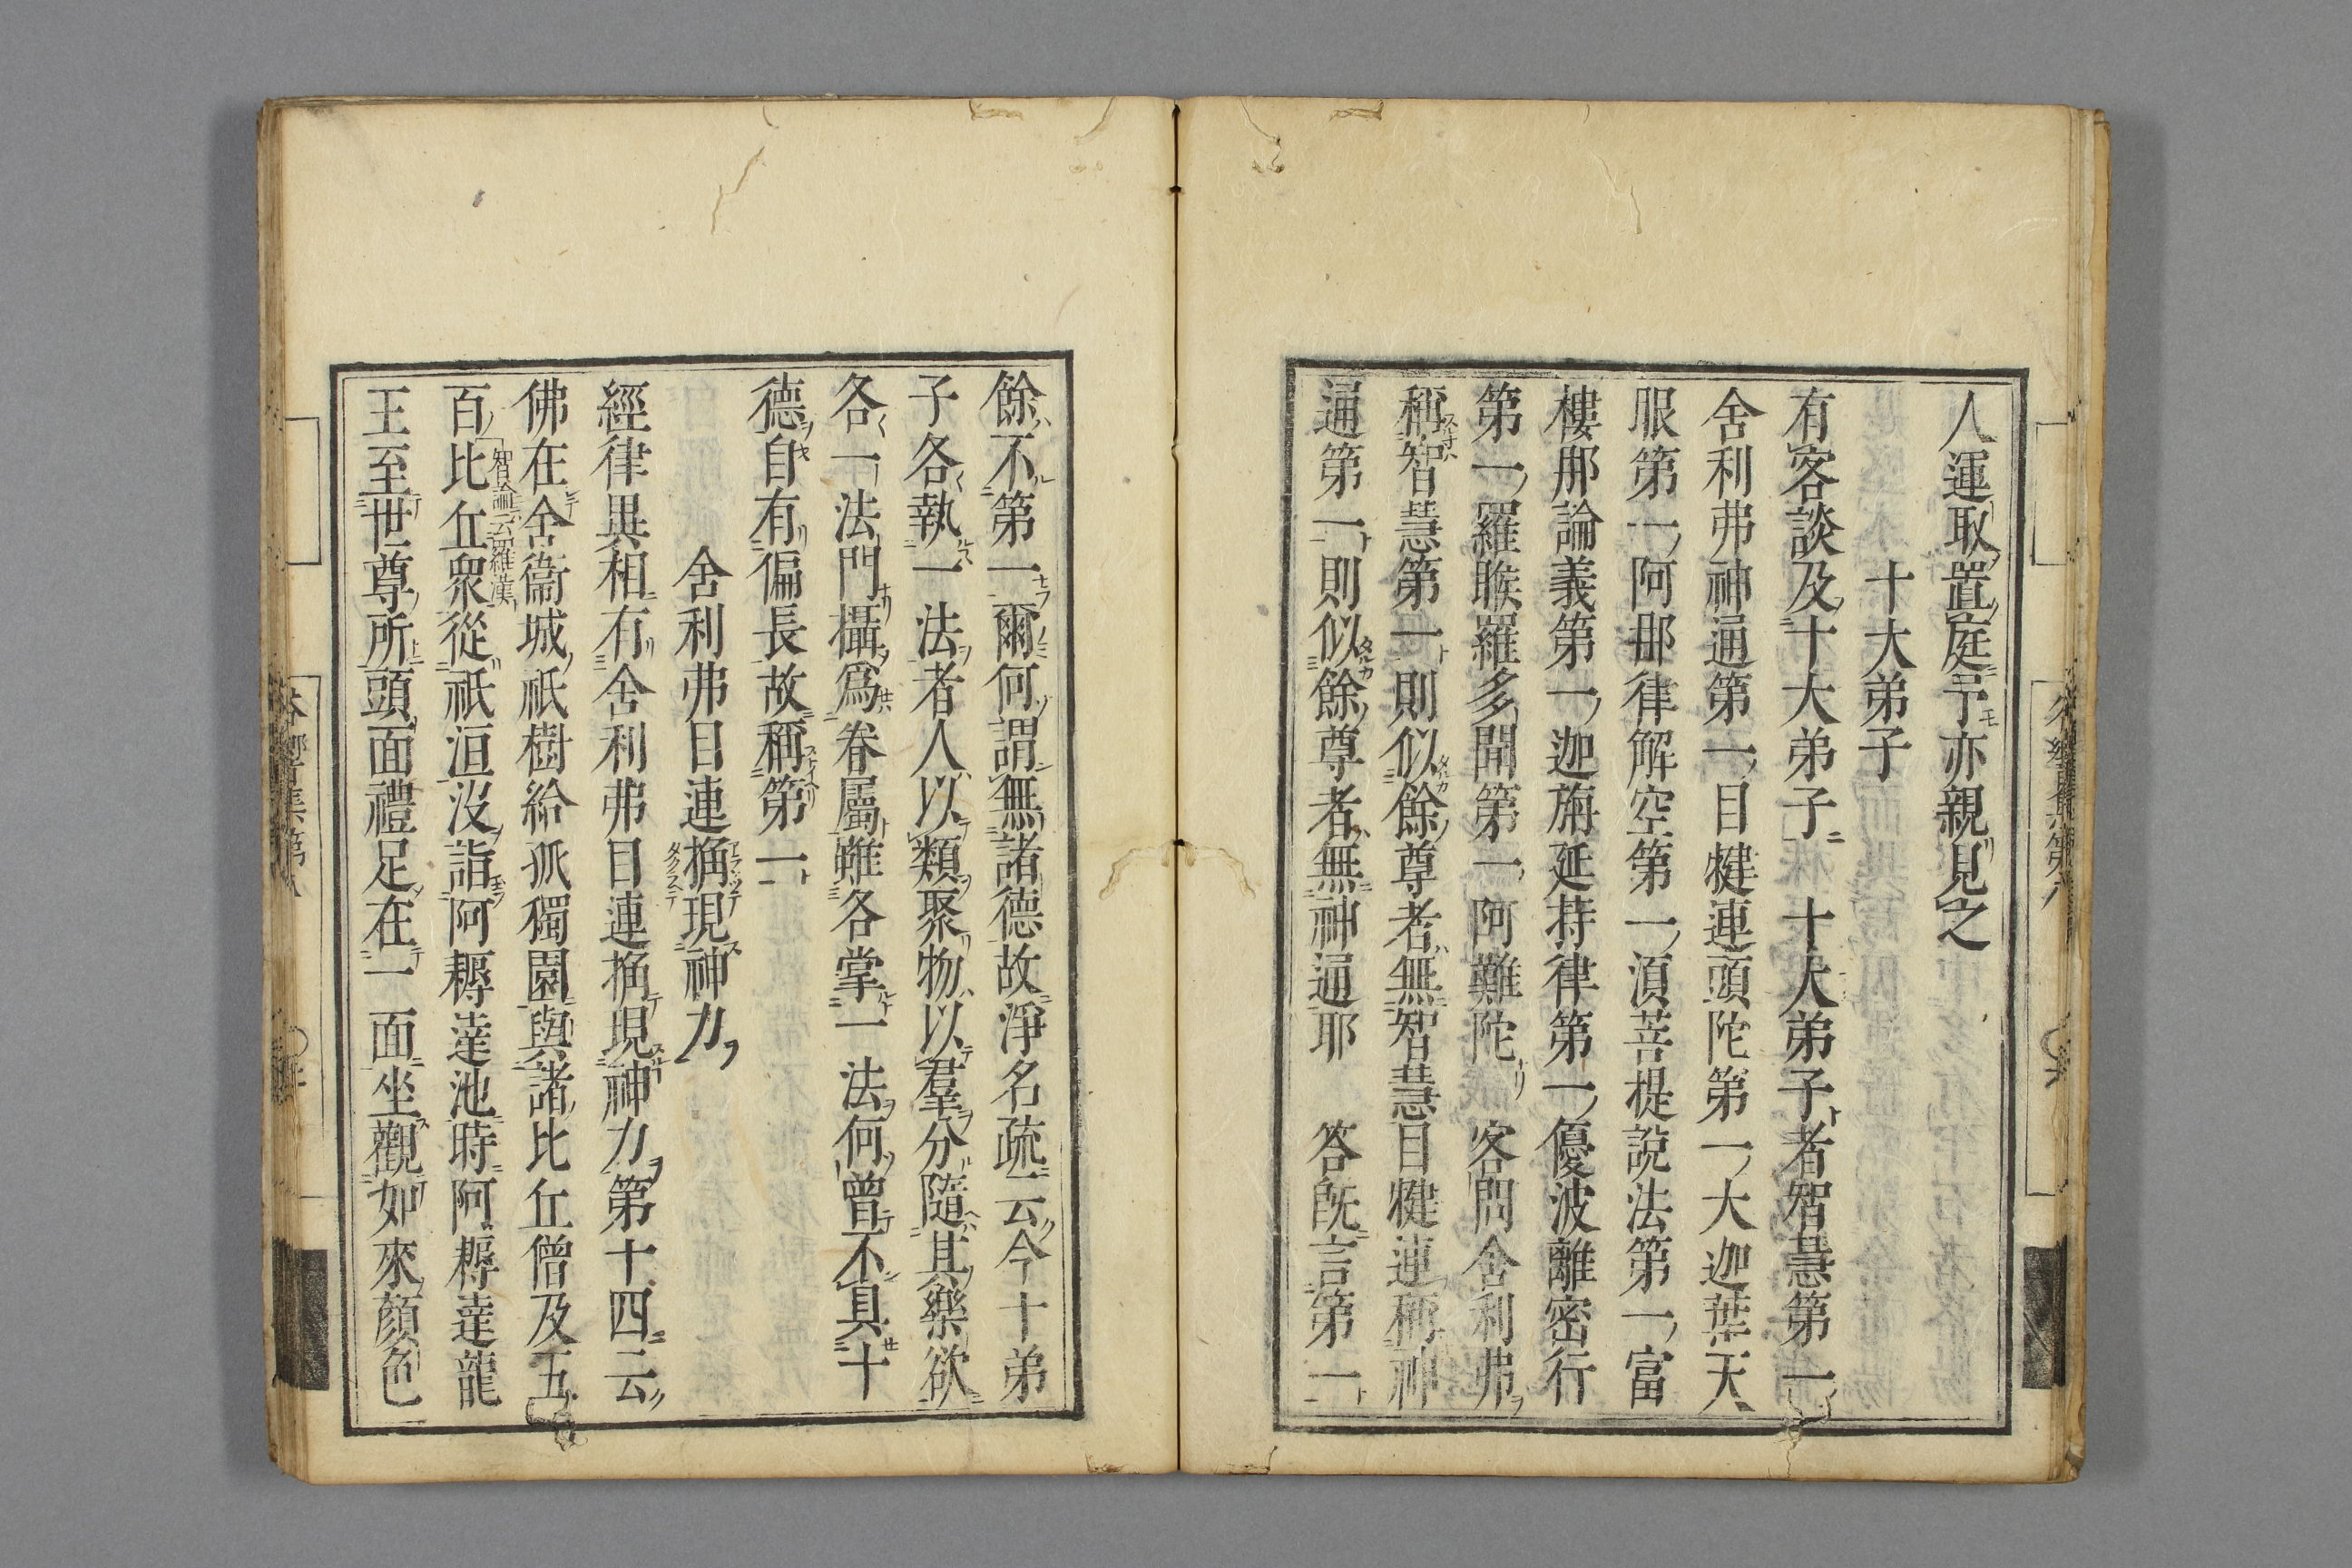 人運取置庭予亦親見之
十大弟子
有客談及十大弟子 十大弟子者智慧第一
舍利弗神通第一目犍連頭陀第一大迦葉天
眼第一阿那律解空第一須菩提說法第一富
樓那論義第一迦旃延持律第一優波離密行
第一羅睺羅多聞第一阿難陀 客問舍利弗
稱智慧第一則似餘尊者無智慧目犍連稱神
通第一則似餘尊者無神通耶 答既言第一
餘不第一爾何謂無諸德故淨名疏云今十弟
子各執一法者人以類聚物以羣分隨其樂欲
各一法門攝為眷屬雖各掌一法何曾不具十
德自有偏長故稱第一
舍利弗目連捔現神力
經律異相有舍利弗目連捔現神力第十四云
佛在舍衞城祇樹給孤獨園與諸比丘僧及五
百比丘衆從祇洹沒詣阿耨達池時阿耨達龍
智論云羅漢
王至世尊所頭面禮足在一面坐觀如來顏色